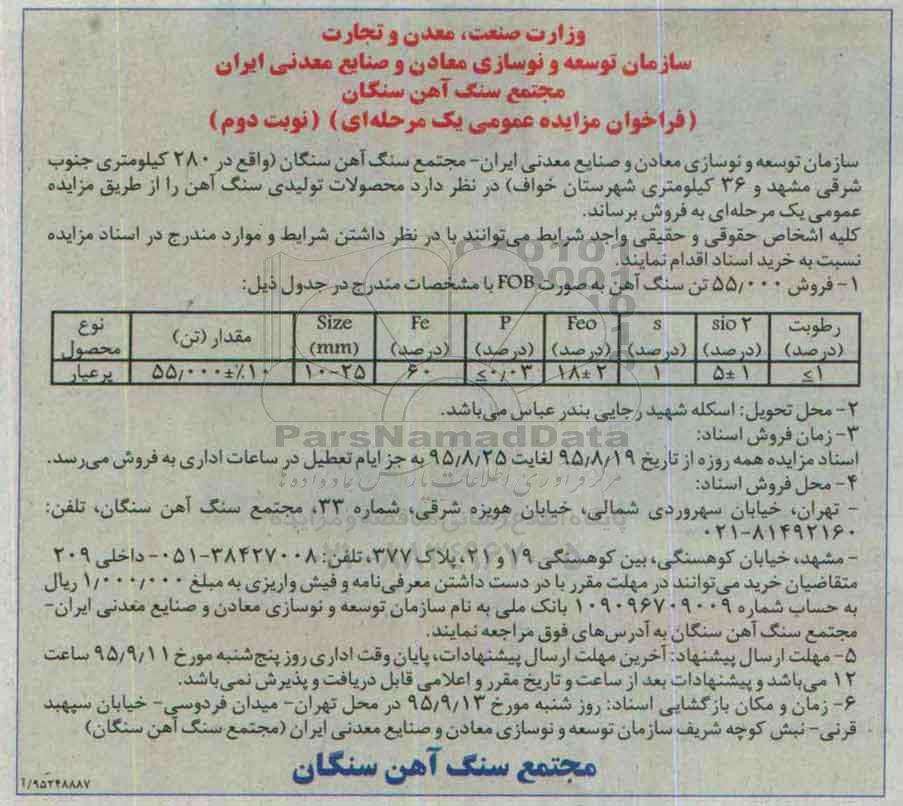 وزارت صنعت، معدن و تجارت
سازمان توسعه و نوسازی معادن و صنایع معدنی ایران
مجتمع سنگ آهن سنگان
(فراخوان مزایده عمومی یک مرحله‌ای) (نوبت دوم)
سازمان توسعه و نوسازی معادن و صنایع معدنی ایران- مجتمع سنگ آهن سنگان (واقع در ۲۸۰ کیلومتری جنوب
شرقی مشهد و ۳۶ کیلومتری شهرستان خواف) در نظر دارد محصولات تولیدی سنگ آهن را از طریق مزایده
عمومی یک مرحله‌ای به فروش برساند.
کلیه اشخاص حقوقی و حقیقی واجد شرایط می‌توانند با در نظر داشتن شرایط و موارد مندرج در اسناد مزایده
نسبت به خرید اسناد اقدام نمایند.
۱- فروش ۵۵٫۰۰۰ تن سنگ آهن به صورت FOB با مشخصات مندرج در جدول ذیل:
نوع محصول | مقدار (تن) | Size (mm) | Fe (درصد) | P (درصد) | Feo (درصد) | s (درصد) | sio ۲ (درصد) | رطوبت (درصد)
پرعیار | ۵۵٫۰۰۰±٪۱۰ | ۱۰-۲۵ | ۶۰ | ≤۰٫۰۳ | ۱۸±۲ | ۱ | ۵±۱ | ≤۱
۲- محل تحویل: اسکله شهید رجایی بندر عباس می‌باشد.
۳- زمان فروش اسناد:
اسناد مزایده همه روزه از تاریخ ۹۵/۸/۱۹ لغایت ۹۵/۸/۲۵ به جز ایام تعطیل در ساعات اداری به فروش می‌رسد.
۴- محل فروش اسناد:
- تهران، خیابان سهروردی شمالی، خیابان هویزه شرقی، شماره ۳۳، مجتمع سنگ آهن سنگان، تلفن:
۰۲۱-۸۱۴۹۲۱۶۰
- مشهد، خیابان کوهسنگی، بین کوهسنگی ۱۹ و ۲۱، پلاک ۳۷۷، تلفن: ۳۸۴۲۷۰۰۸-۰۵۱- داخلی ۲۰۹
متقاضیان خرید می‌توانند در مهلت مقرر با در دست داشتن معرفی‌نامه و فیش واریزی به مبلغ ۱/۰۰۰/۰۰۰ ریال
به حساب شماره ۱۰۹۰۹۶۷۰۹۰۰۹ بانک ملی به نام سازمان توسعه و نوسازی معادن و صنایع معدنی ایران-
مجتمع سنگ آهن سنگان به آدرس‌های فوق مراجعه نمایند.
۵- مهلت ارسال پیشنهاد: آخرین مهلت ارسال پیشنهادات، پایان وقت اداری روز پنج‌شنبه مورخ ۹۵/۹/۱۱ ساعت
۱۲ می‌باشد و پیشنهادات بعد از ساعت و تاریخ مقرر و اعلامی قابل دریافت و پذیرش نمی‌باشد.
۶- زمان و مکان بازگشایی اسناد: روز شنبه مورخ ۹۵/۹/۱۳ در محل تهران- میدان فردوسی- خیابان سپهبد
قرنی- نبش کوچه شریف سازمان توسعه و نوسازی معادن و صنایع معدنی ایران (مجتمع سنگ آهن سنگان)
مجتمع سنگ آهن سنگان
آ/۹۵۲۴۸۸۸۷
ParsNamadData